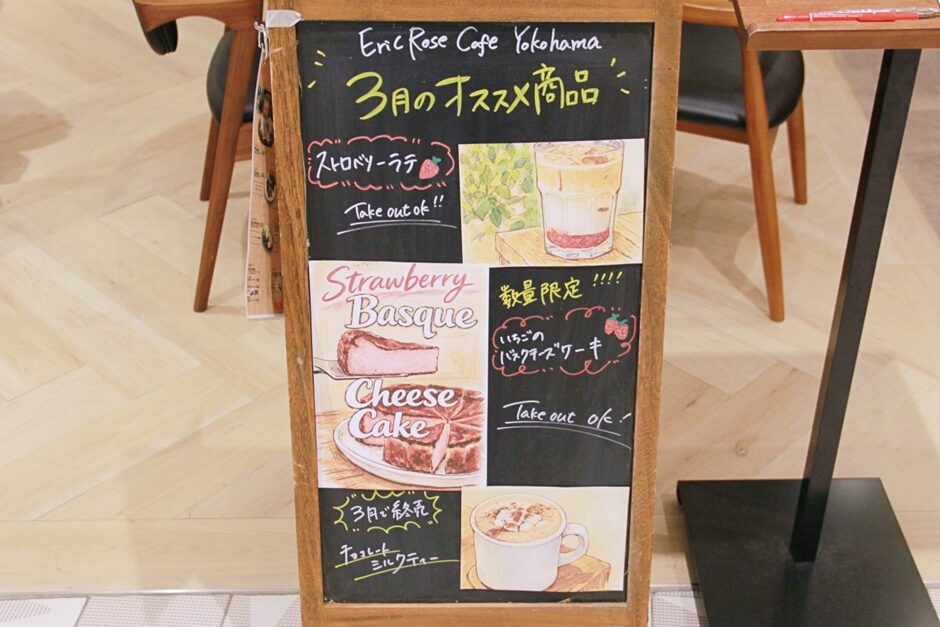 Eric Rose Cafe Yokohama
3月のオススメ商品
ストロベリーラテ
Take out ok!!
Strawberry
Basque
Cheese
Cake
数量限定!!!!
いちごの
バスクチーズケーキ
Take out ok!
3月で終売
チョコレート
ミルクティー